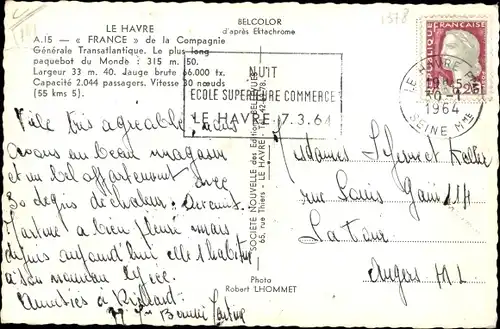 LE HAVRE
A.15 — « FRANCE » de la Compagnie
Générale Transatlantique. Le plus long
paquebot du Monde : 315 m. 50.
Largeur 33 m. 40. Jauge brute 66.000 tx.
Capacité 2.044 passagers. Vitesse 30 nœuds
(55 kms 5).
BELCOLOR
d'après Ektachrome
NUIT
ECOLE SUPERIEURE COMMERCE
LE HAVRE 7.3.64
REPUBLIQUE
FRANÇAISE
0,25
LE HAVRE
1964
SEINE Mme
Ville très agréable, nous
avons un beau magasin
et un bel appartement avec
30 degrés de chaleur.
Martine a bien pleuré mais
depuis aujourd'hui elle s'habitue
à son nouveau lycée.
Amitiés à
SOCIÉTÉ NOUVELLE des Editions BELLEVUES
65, rue Thiers - LE HAVRE
Photo
Robert LHOMMET
Mesdames
rue Louis Gain 114
La Tour
Angers M.L